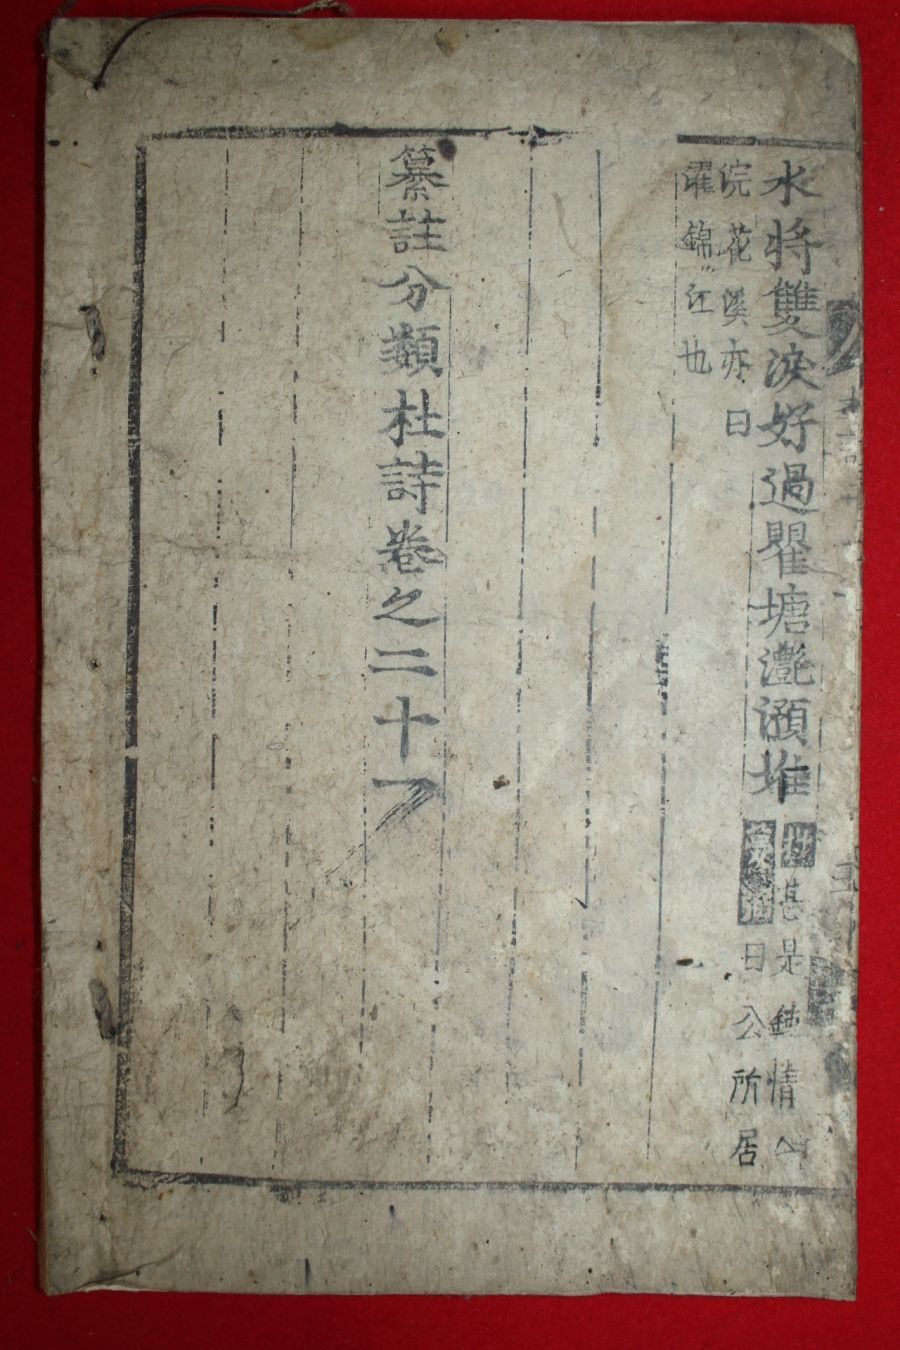 水將雙淚好過瞿塘灔澦堆
甚是鍾情
曰公所居
浣花溪亦曰
濯錦江也
纂註分類杜詩卷之二十一